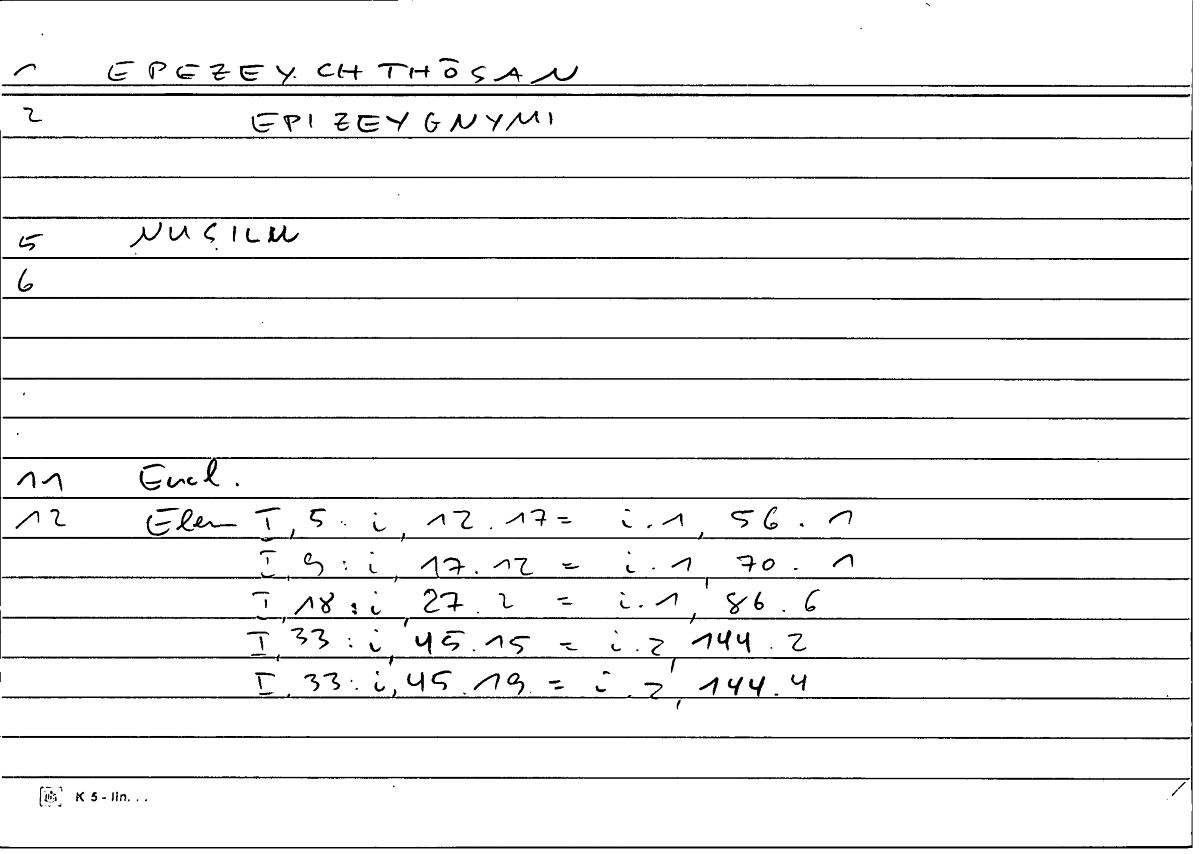 1 EPEZEYCHTHŌSAN
2 EPIZEYGNYMI
5 NUṢILU
6
11 Eucl.
12 Elem I, 5 : i, 12.17 = i.1, 56.1
I, 9 : i, 17.12 = i.1, 70.1
I, 18 : i, 27.2 = i.1, 86.6
I, 33 : i, 45.15 = i.2, 144.2
I, 33 : i, 45.19 = i.2, 144.4
K 5 - lin...